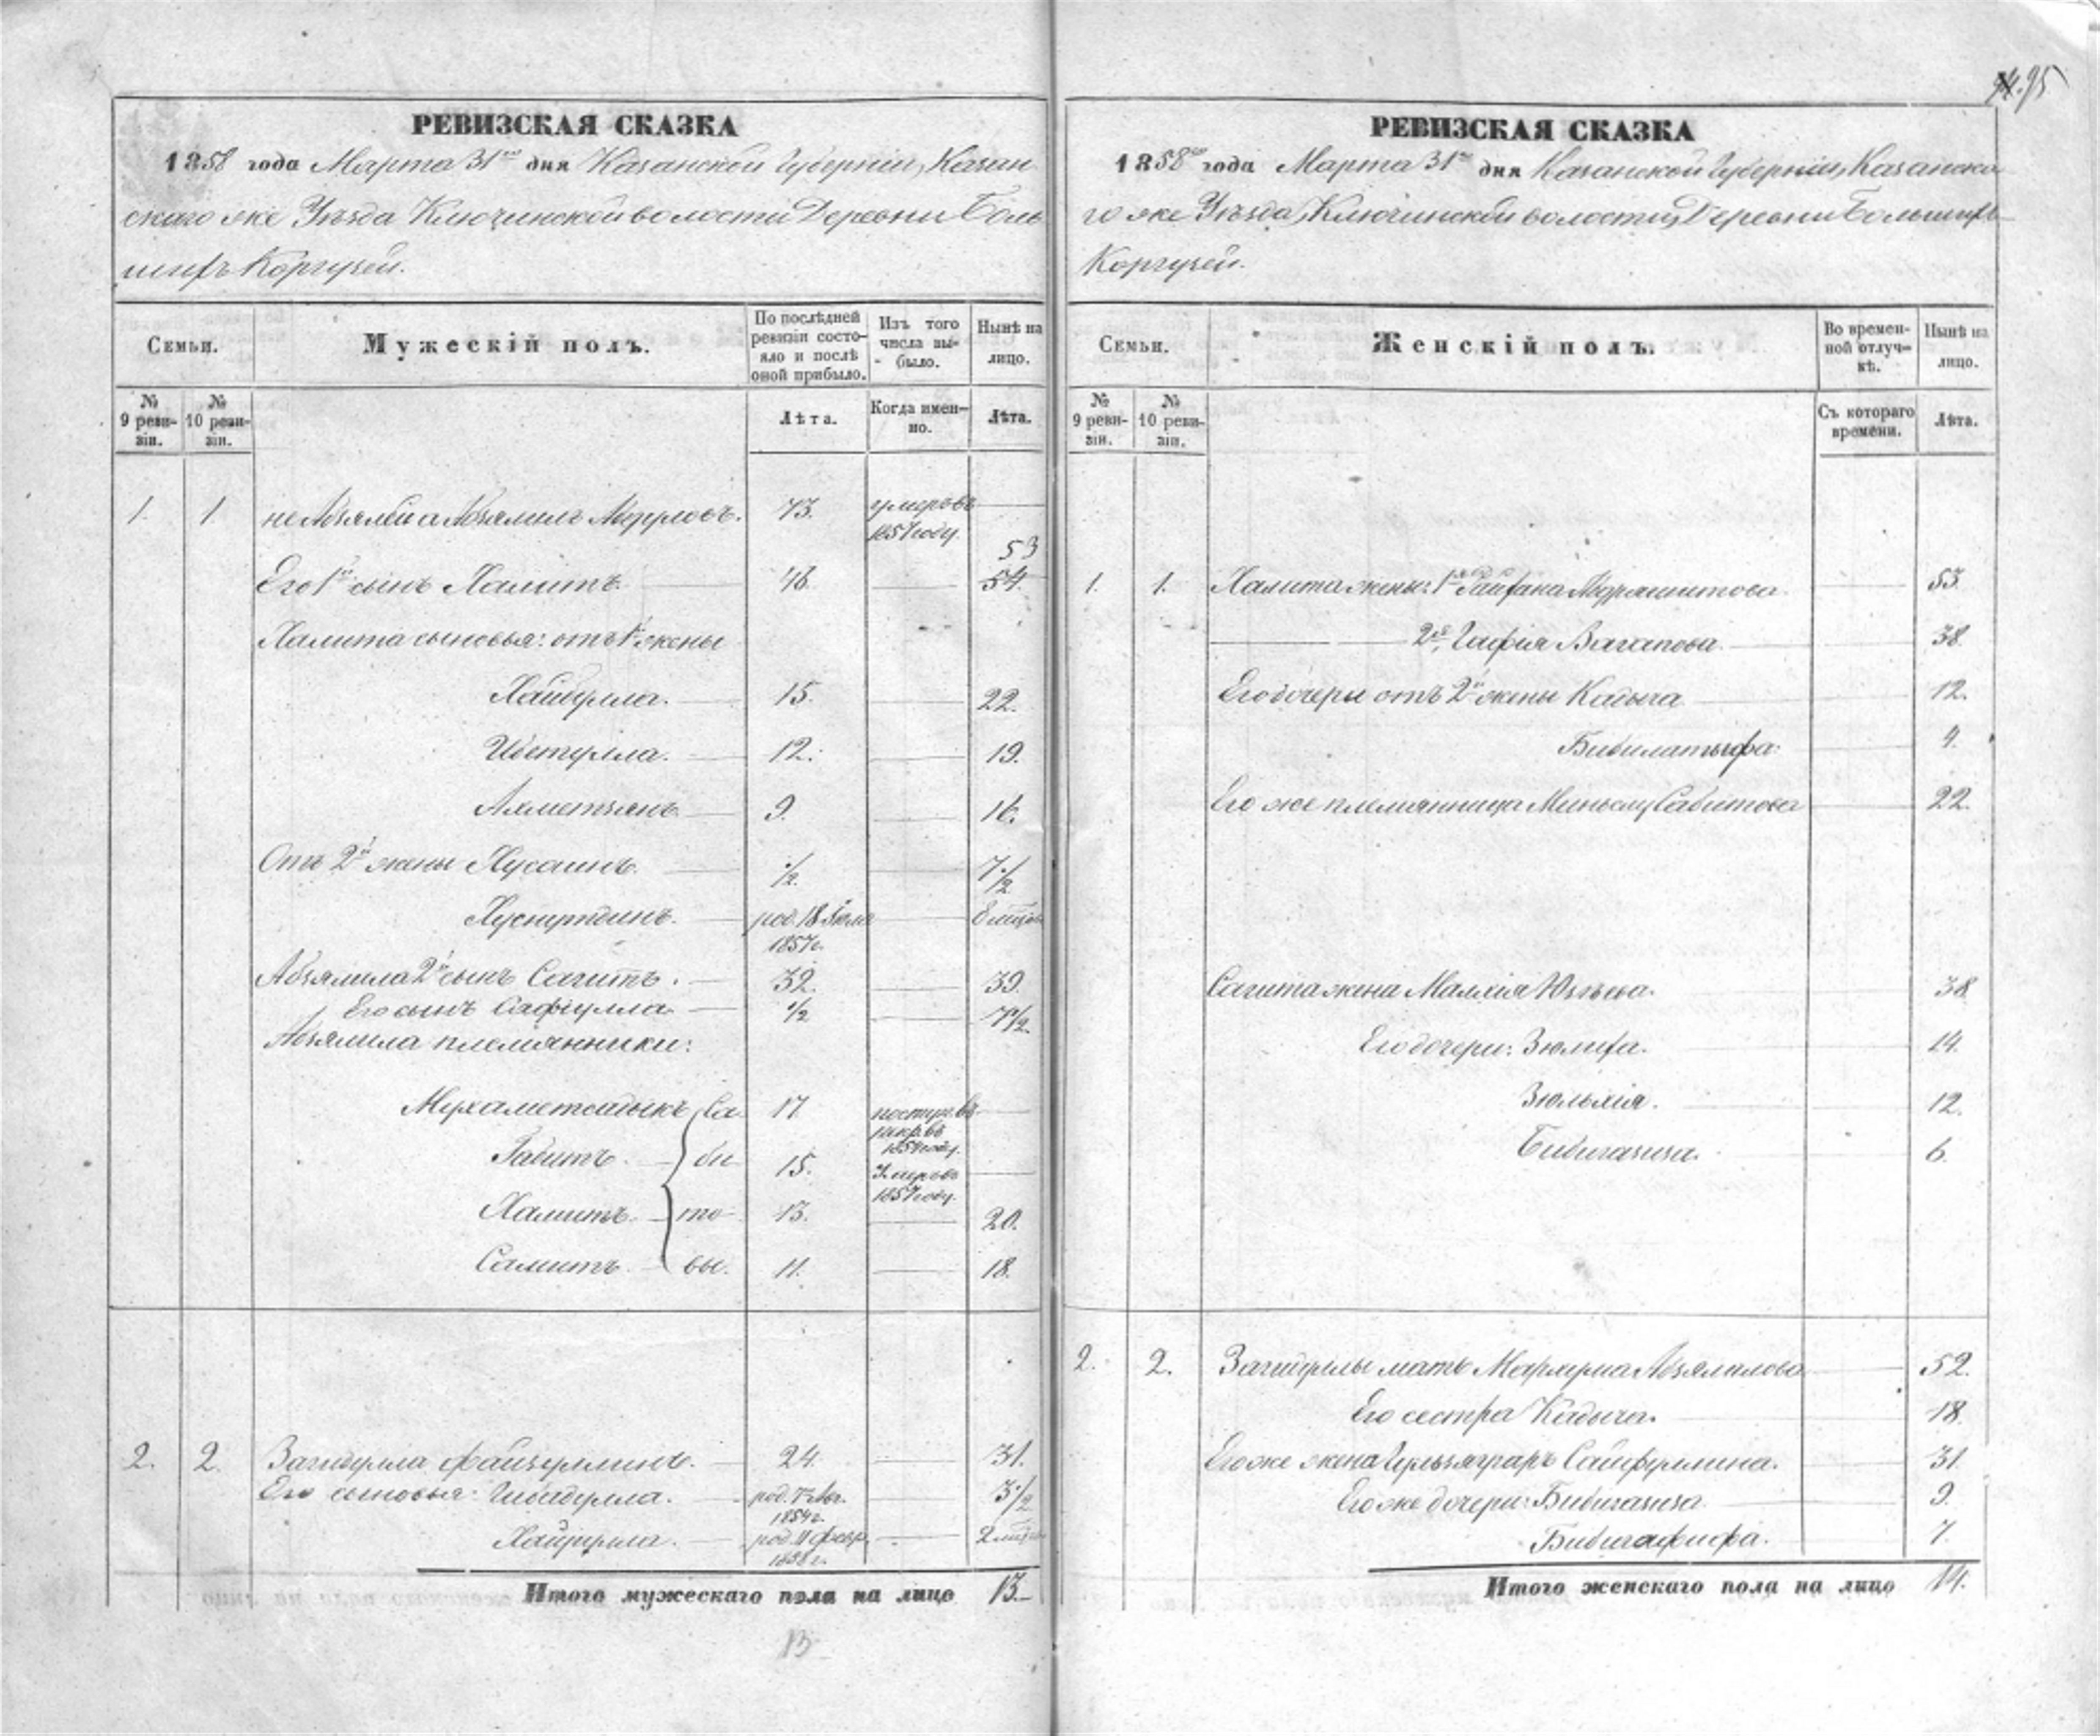 95
РЕВИЗСКАЯ СКАЗКА
1858 года Марта 31го дня Казанской Губерніи, Казан
скаго же Уѣзда Ключинской волости Деревни Боль
шихъ Коргузей.
Семьи. Мужескій полъ. По послѣдней ревизіи состояло и послѣ оной прибыло. Изъ того числа выбыло. Нынѣ на лицо.
№ 9 ревизіи. № 10 ревизіи. Лѣта. Когда именно. Лѣта.
1. 1. не Абзялей а Абзялилъ 73. умеръ въ 1857 году.
53
Его 1й сынъ Халитъ 46. 54.
Халита сыновья: отъ 1й жены
Хайбулла. 15. 22.
Ибетулла. 12. 19.
Ахметзянъ 9. 16.
Отъ 2й жены Хусаинъ 1/2. 7 1/2
Хуснутдинъ. род. 18 Іюля 1857 г. 8 мѣся
Абзялила 2й сынъ Сагитъ. 32. 39.
Его сынъ Сафіулла 1/2 7 1/2.
Абзялила племянники:
Мухаметсадыкъ Са 17. поступ. въ рекр. въ 1854 году.
Габитъ. би 15. Умеръ въ 1857 году.
Халитъ. то 13. 20.
Самитъ вы. 11. 18.
2. 2. Загидулла Файзуллинъ. 24. 31.
Его сыновья: Гибадулла. род. 7 Авг. 1854 г. 3 1/2
Хайрулла. род. 11 Февр. 1858 г. 2 мѣся
Итого мужескаго пола на лицо 13.
13
РЕВИЗСКАЯ СКАЗКА
1858го года Марта 31го дня Казанской Губерніи, Казанска
го же Уѣзда, Ключинской волости, Деревни Большихъ
Коргузей.
Семьи. Женскій полъ. Во временной отлучкѣ. Нынѣ на лицо.
№ 9 ревизіи. № 10 ревизіи. Съ котораго времени. Лѣта.
1. 1. Халита жены: 1я 53.
2я, Гафія Вагапова 38.
Его дочери отъ 2й жены Кадыча 12.
Бибилатыфа. 4.
Его же племянница Миньслу Сабитова 22.
Сагита жена Малхія Юзѣева. 38
Его дочери: Зюлиха. 14.
Зюльхія. 12.
Бибигазиза. 6.
2. 2. Загидуллы мать Абзялилова 52.
Его сестра Кадыча. 18.
Его же жена Сайфуллина. 31
Его же дочери: Бибигазиза 9.
Бибигафифа. 7.
Итого женскаго пола на лицо 14.